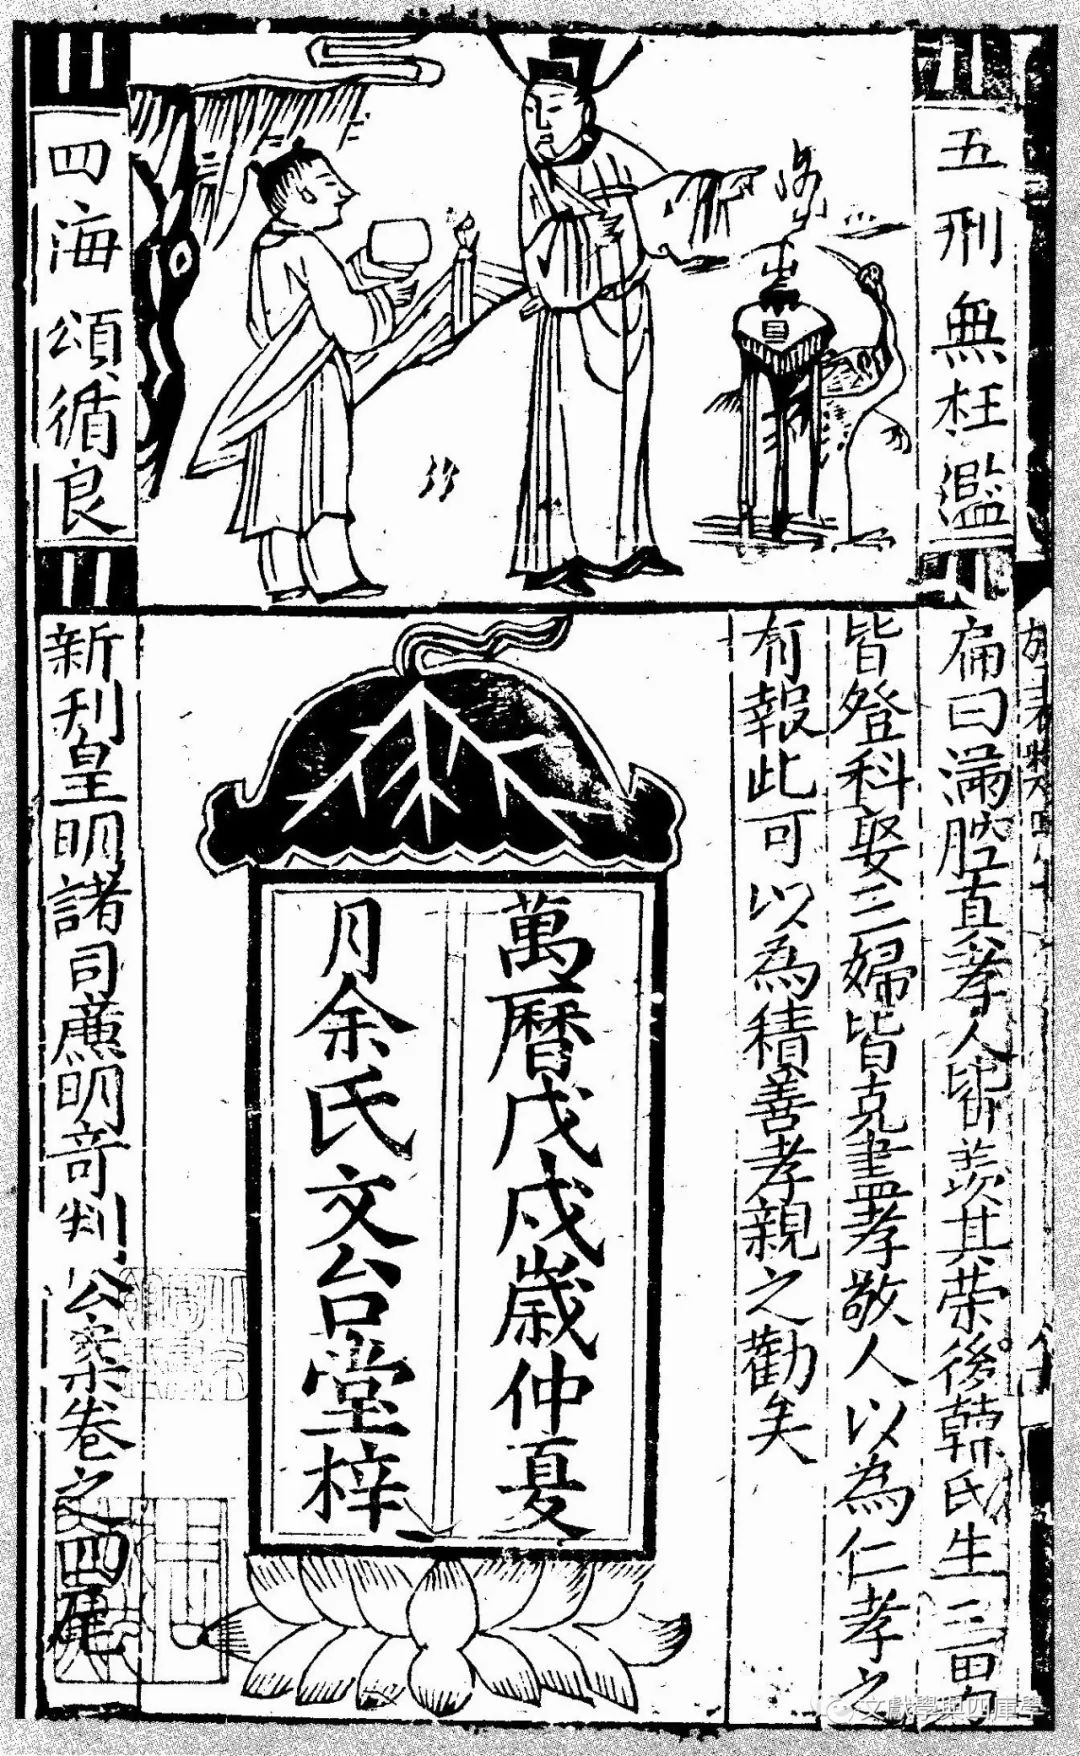 五刑無枉濫
四海頌循良
扁曰滿腔真孝人皆羨其荣後韓氏生三男
皆登科娶三婦皆克盡孝敬人以為仁孝之
有報此可以為積善孝親之勸矣
萬曆戊戌歲仲夏
月余氏文台堂梓
新刋皇明諸司廉明奇判公案卷之四尾
文獻學與四庫學